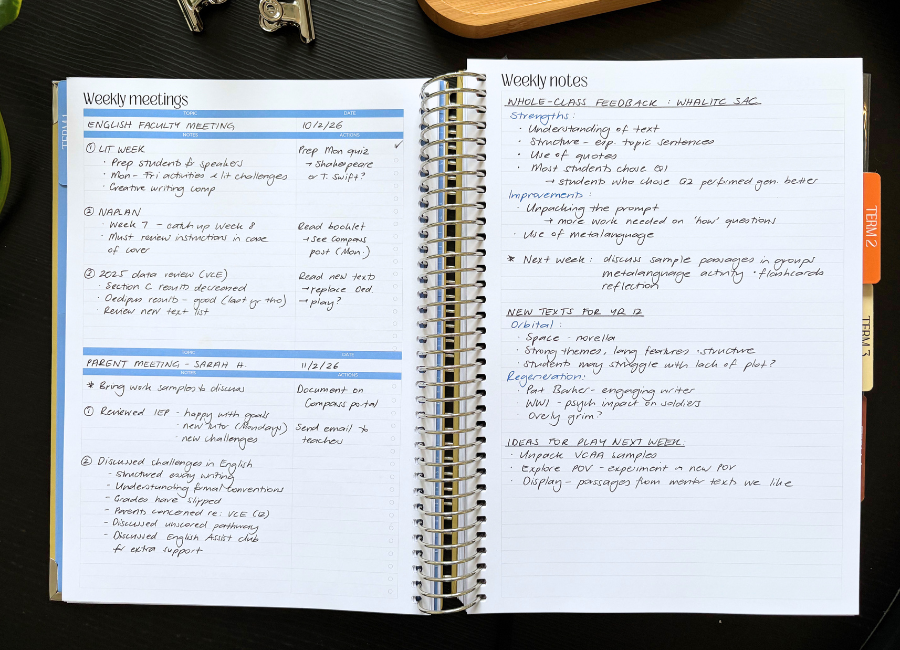 TERM 1
Weekly meetings
TOPIC
DATE
ENGLISH FACULTY MEETING
10/2/26
NOTES
ACTIONS
① LIT WEEK
· Prep students for speakers
· Mon - Fri activities & lit challenges
· Creative writing comp
Prep Mon quiz ✓
→ Shakespeare
or T. Swift?
② NAPLAN
· Week 7 - catch up Week 8
· Must review instructions in case
of cover
Read booklet
→ See Compass
post (Mon.)
③ 2025 data review (VCE)
· Section C results decreased
· Oedipus results - good (last yr tho)
· Review new text list
Read new texts
→ replace Oed.
→ play?
TOPIC
DATE
PARENT MEETING - SARAH H.
11/2/26
NOTES
ACTIONS
* Bring work samples to discuss
Document on
Compass portal
① Reviewed IEP - happy with goals
- new tutor (Mondays)
- new challenges
Send email to
teachers
② Discussed challenges in English
- Structured essay writing
- Understanding formal conventions
- Grades have slipped
- Parents concerned re: VCE (12)
- Discussed unscored pathway
- Discussed English Assist club
for extra support
Weekly notes
WHOLE-CLASS FEEDBACK : WHALITC SAC
Strengths:
· Understanding of text
· Structure - esp. topic sentences
· Use of quotes
· Most students chose Q1
→ students who chose Q2 performed gen. better
Improvements:
· Unpacking the prompt
→ more work needed on 'how' questions
· Use of metalanguage
* Next week: discuss sample passages in groups
metalanguage activity · flashcards
reflection
NEW TEXTS FOR YR 12
Orbital:
· Space - novella
· Strong themes, lang features · structure
· Students may struggle with lack of plot?
Regeneration:
· Pat Barker - engaging writer
· WWI - psych impact on soldiers
· Overly grim?
IDEAS FOR PLAY NEXT WEEK:
· Unpack VCAA samples
· Explore POV - experiment in new POV
· Display - passages from mentor texts we like
TERM 2
TERM 3